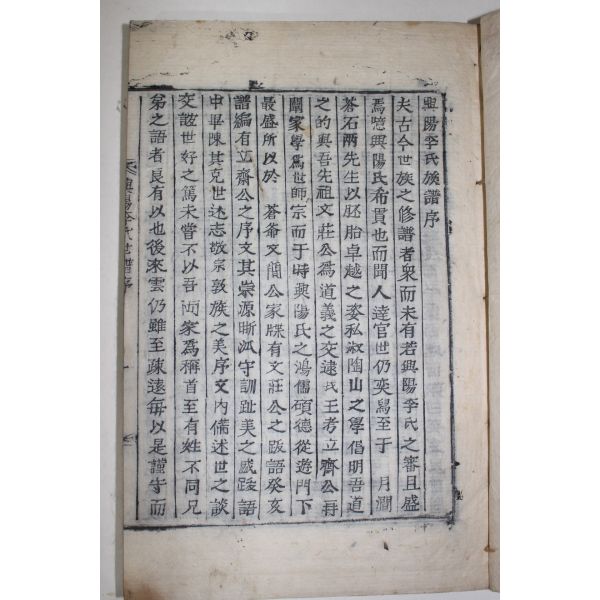 興陽李氏族譜序
夫古今世族之修譜者衆而未有若興陽李氏之審且盛
焉噫興陽氏布貫也而聞人達官世仍奕舃至于 月澗
蒼石兩先生以胚胎卓越之姿私淑陶山之學倡明吾道
之的與吾先祖文莊公爲道義之交逮我王考立齋公再
闡家學爲世師宗而于時興陽氏之鴻儒碩德從遊門下
最盛所以於 蒼爺文簡公家牒有文莊公之跋語癸亥
譜編有立齋公之序文其崇源晰派守訓趾美之盛跋語
中畢陳其克世述志敬宗敦族之美序文內備述世之談
交誼世好之篤未嘗不以吾兩家爲稱首至有姓不同兄
弟之語者良有以也後來雲仍雖至疎遠每以是謹守而
興陽李氏世譜序